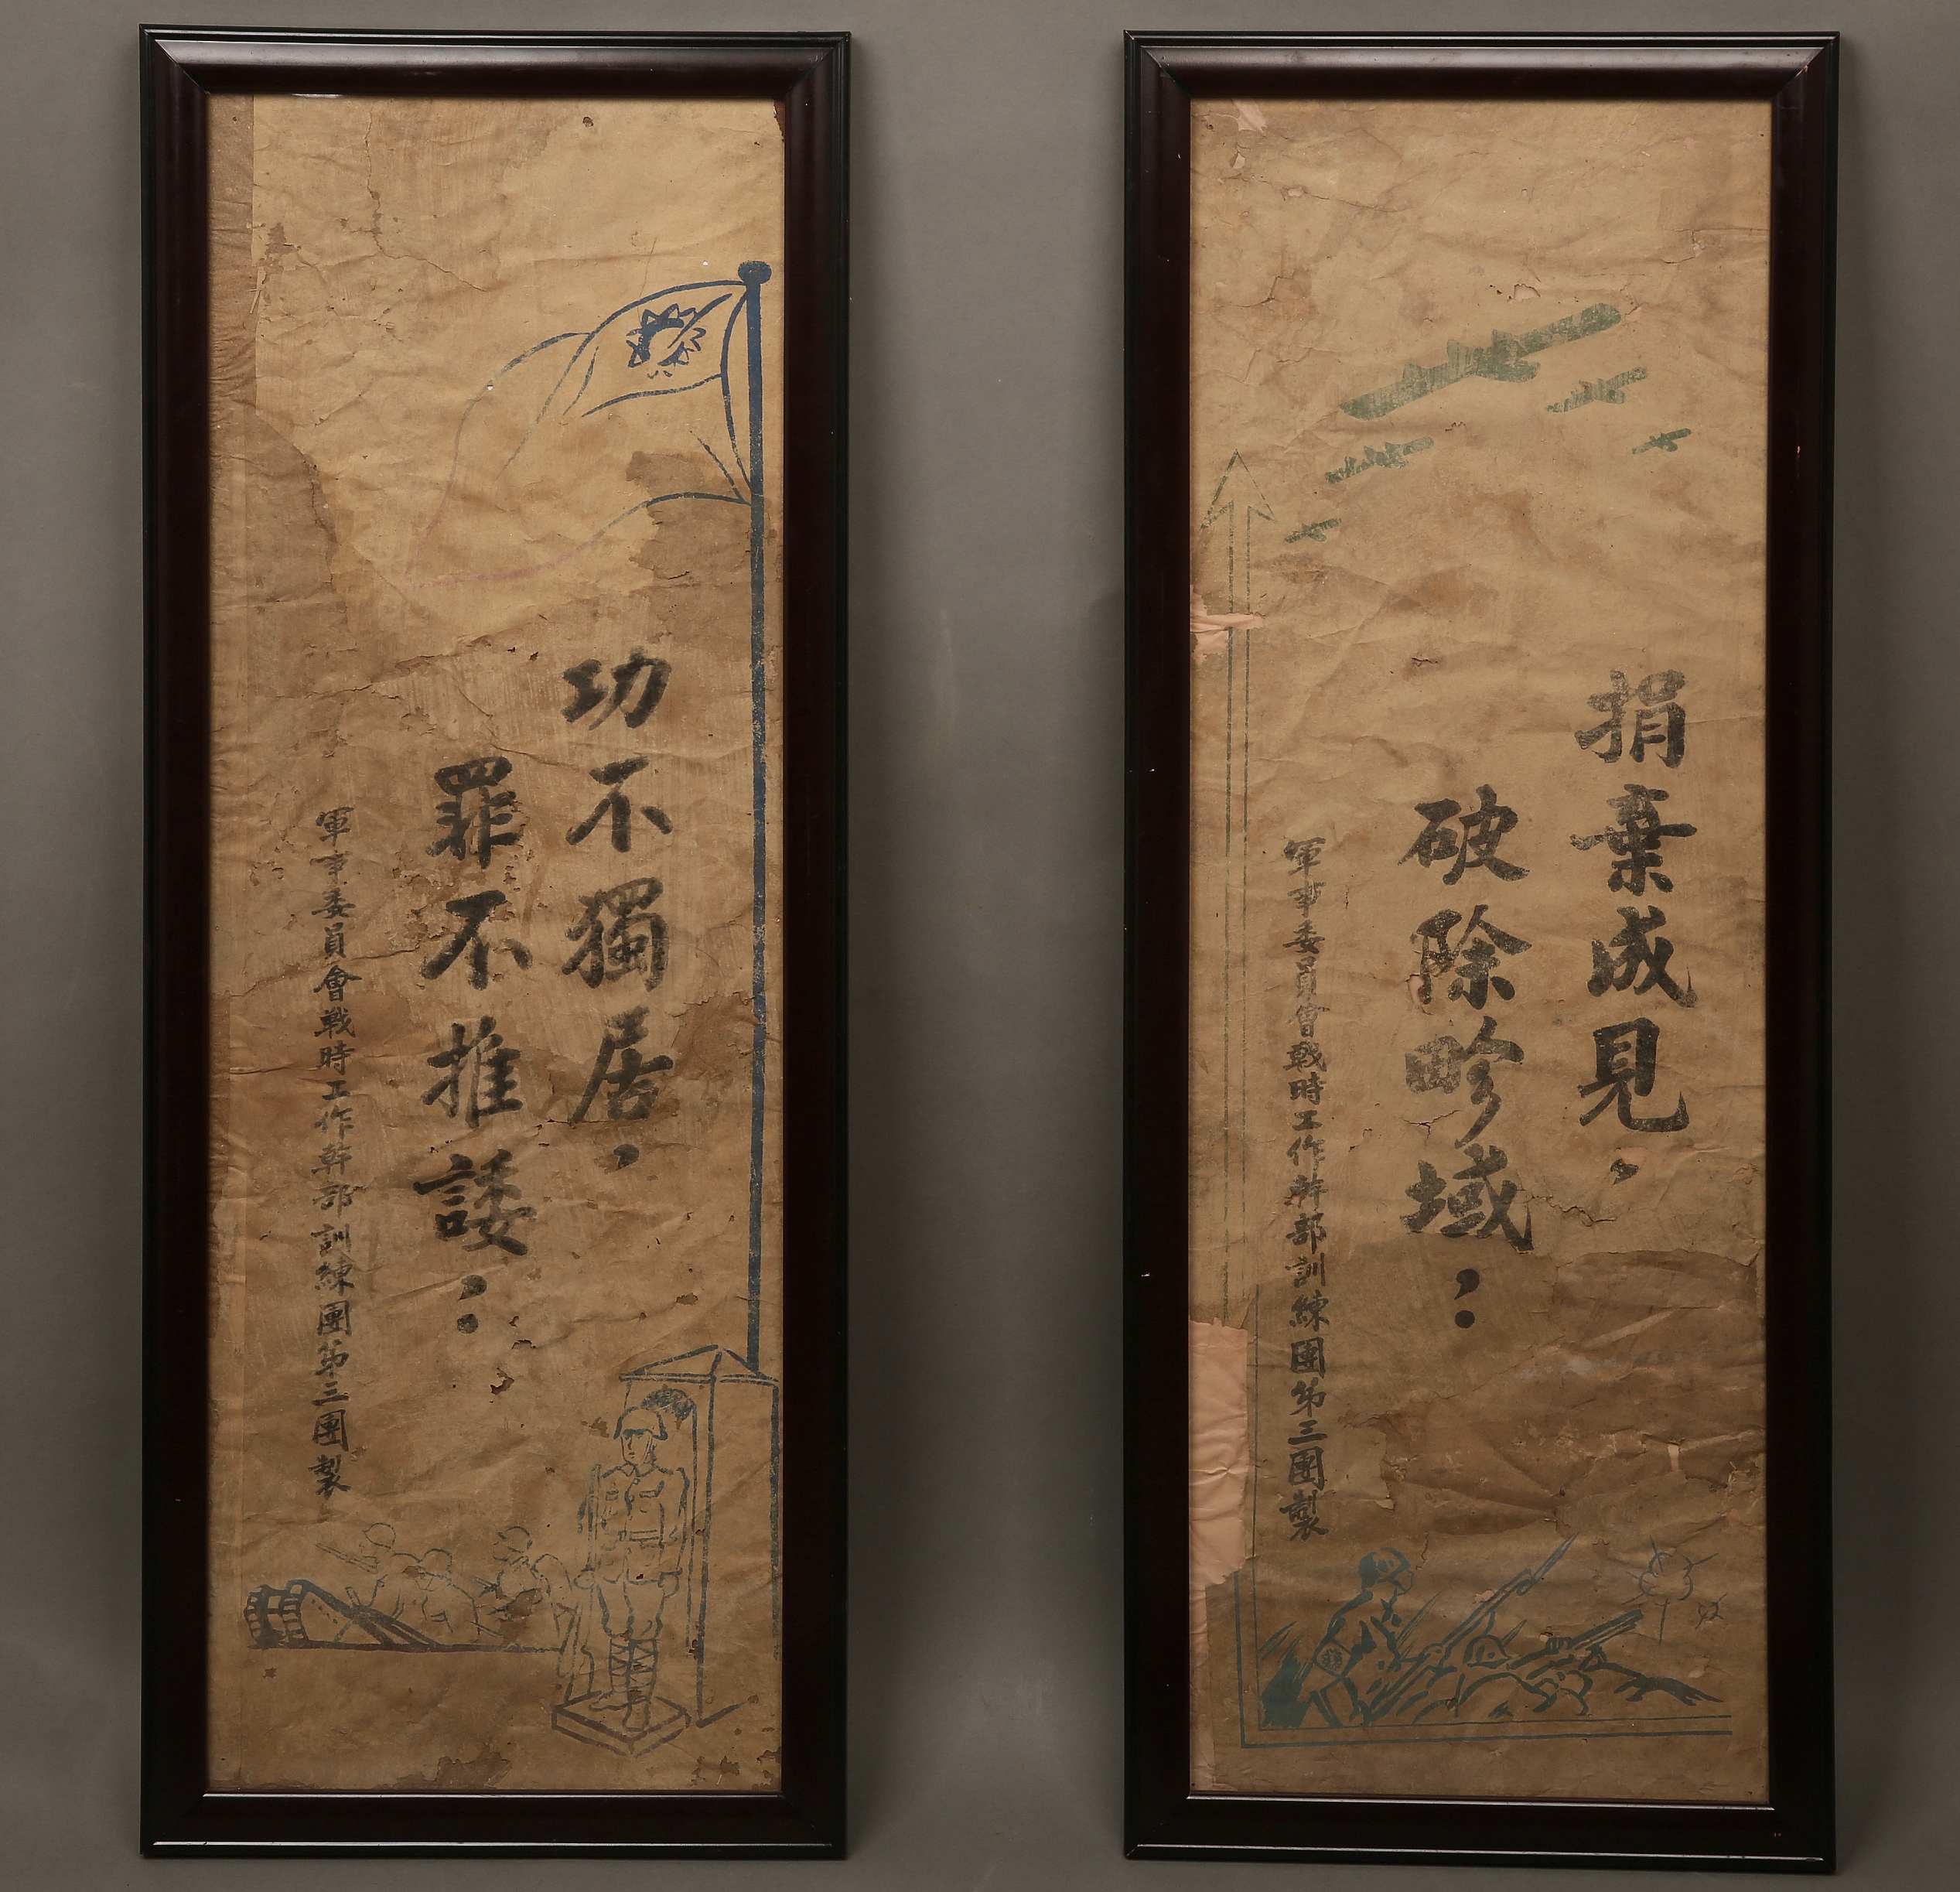 捐棄成見，
破除畛域；
軍事委員會戰時工作幹部訓練團第三團製
功不獨居，
罪不推諉；
軍事委員會戰時工作幹部訓練團第三團製